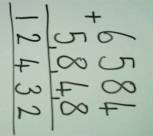 + 6584
5848
12432